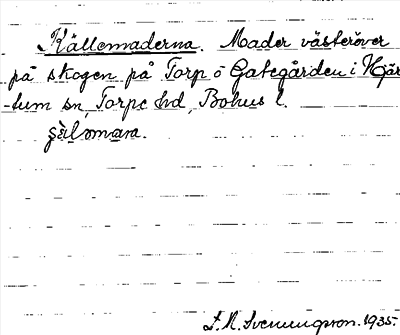 Källemaderna. Mader västeröver
på skogen på Torp o Gategården i Hjär
-tum sn, Torpe hd, Bohus l.
S. M. Svenningson. 1935.